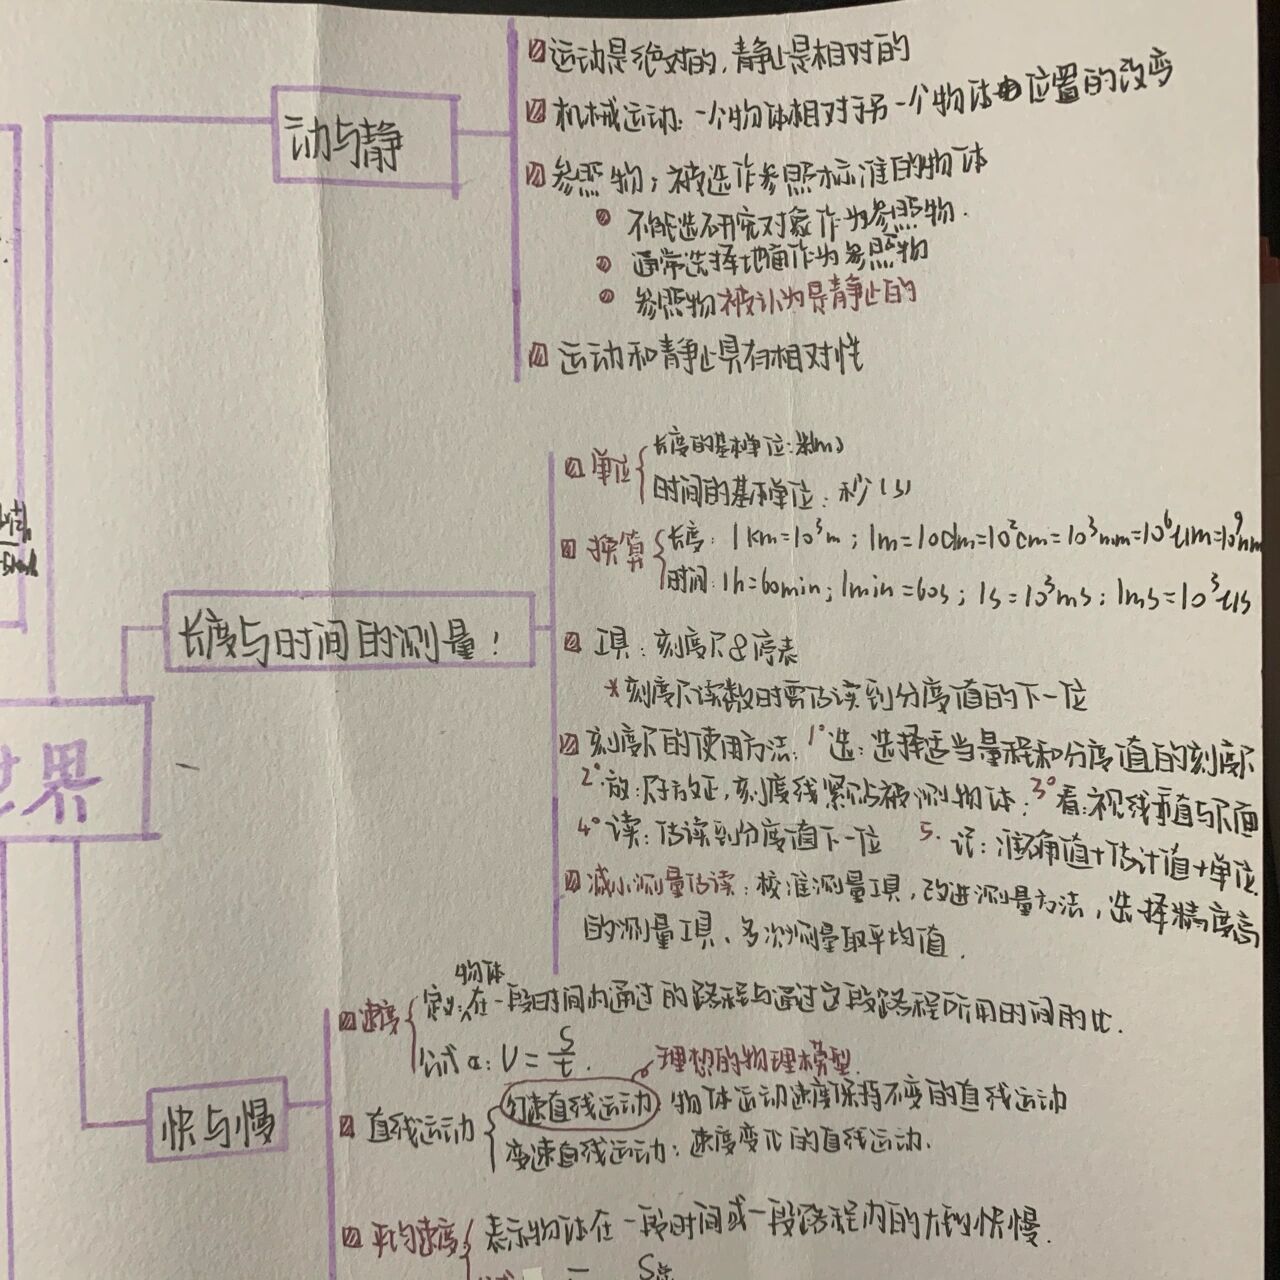 动与静
运动是绝对的，静止是相对的
机械运动：一个物体相对于另一个物体的位置的改变
参照物：被选作参照标准的物体
不能选研究对象作为参照物.
通常选择地面作为参照物
参照物被认为是静止的
运动和静止具有相对性
长度与时间的测量！
单位
长度的基本单位：米(m)
时间的基本单位：秒(s)
换算
长度：1km=10³m；1m=10dm=10²cm=10³mm=10⁶um=10⁹nm
时间：1h=60min；1min=60s；1s=10³ms；1ms=10³us
工具：刻度尺&停表
*刻度尺读数时需估读到分度值的下一位
刻度尺的使用方法：1°选：选择适当量程和分度值的刻度尺
2°.放：尺子放正，刻度线紧贴被测物体. 3°看：视线垂直与尺面
4°读：估读到分度值下一位 5. 记：准确值+估计值+单位.
减小测量估读：校准测量工具，改进测量方法，选择精度高
的测量工具、多次测量取平均值.
世界
快与慢
速度
物体
定义：在一段时间内通过的路程与通过这段路程所用时间的比.
公式：V=S/t.
理想的物理模型
直线运动
匀速直线运动：物体运动速度保持不变的直线运动
变速直线运动：速度变化的直线运动.
平均速度
表示物体在一段时间或一段路程内的大约快慢.
S总